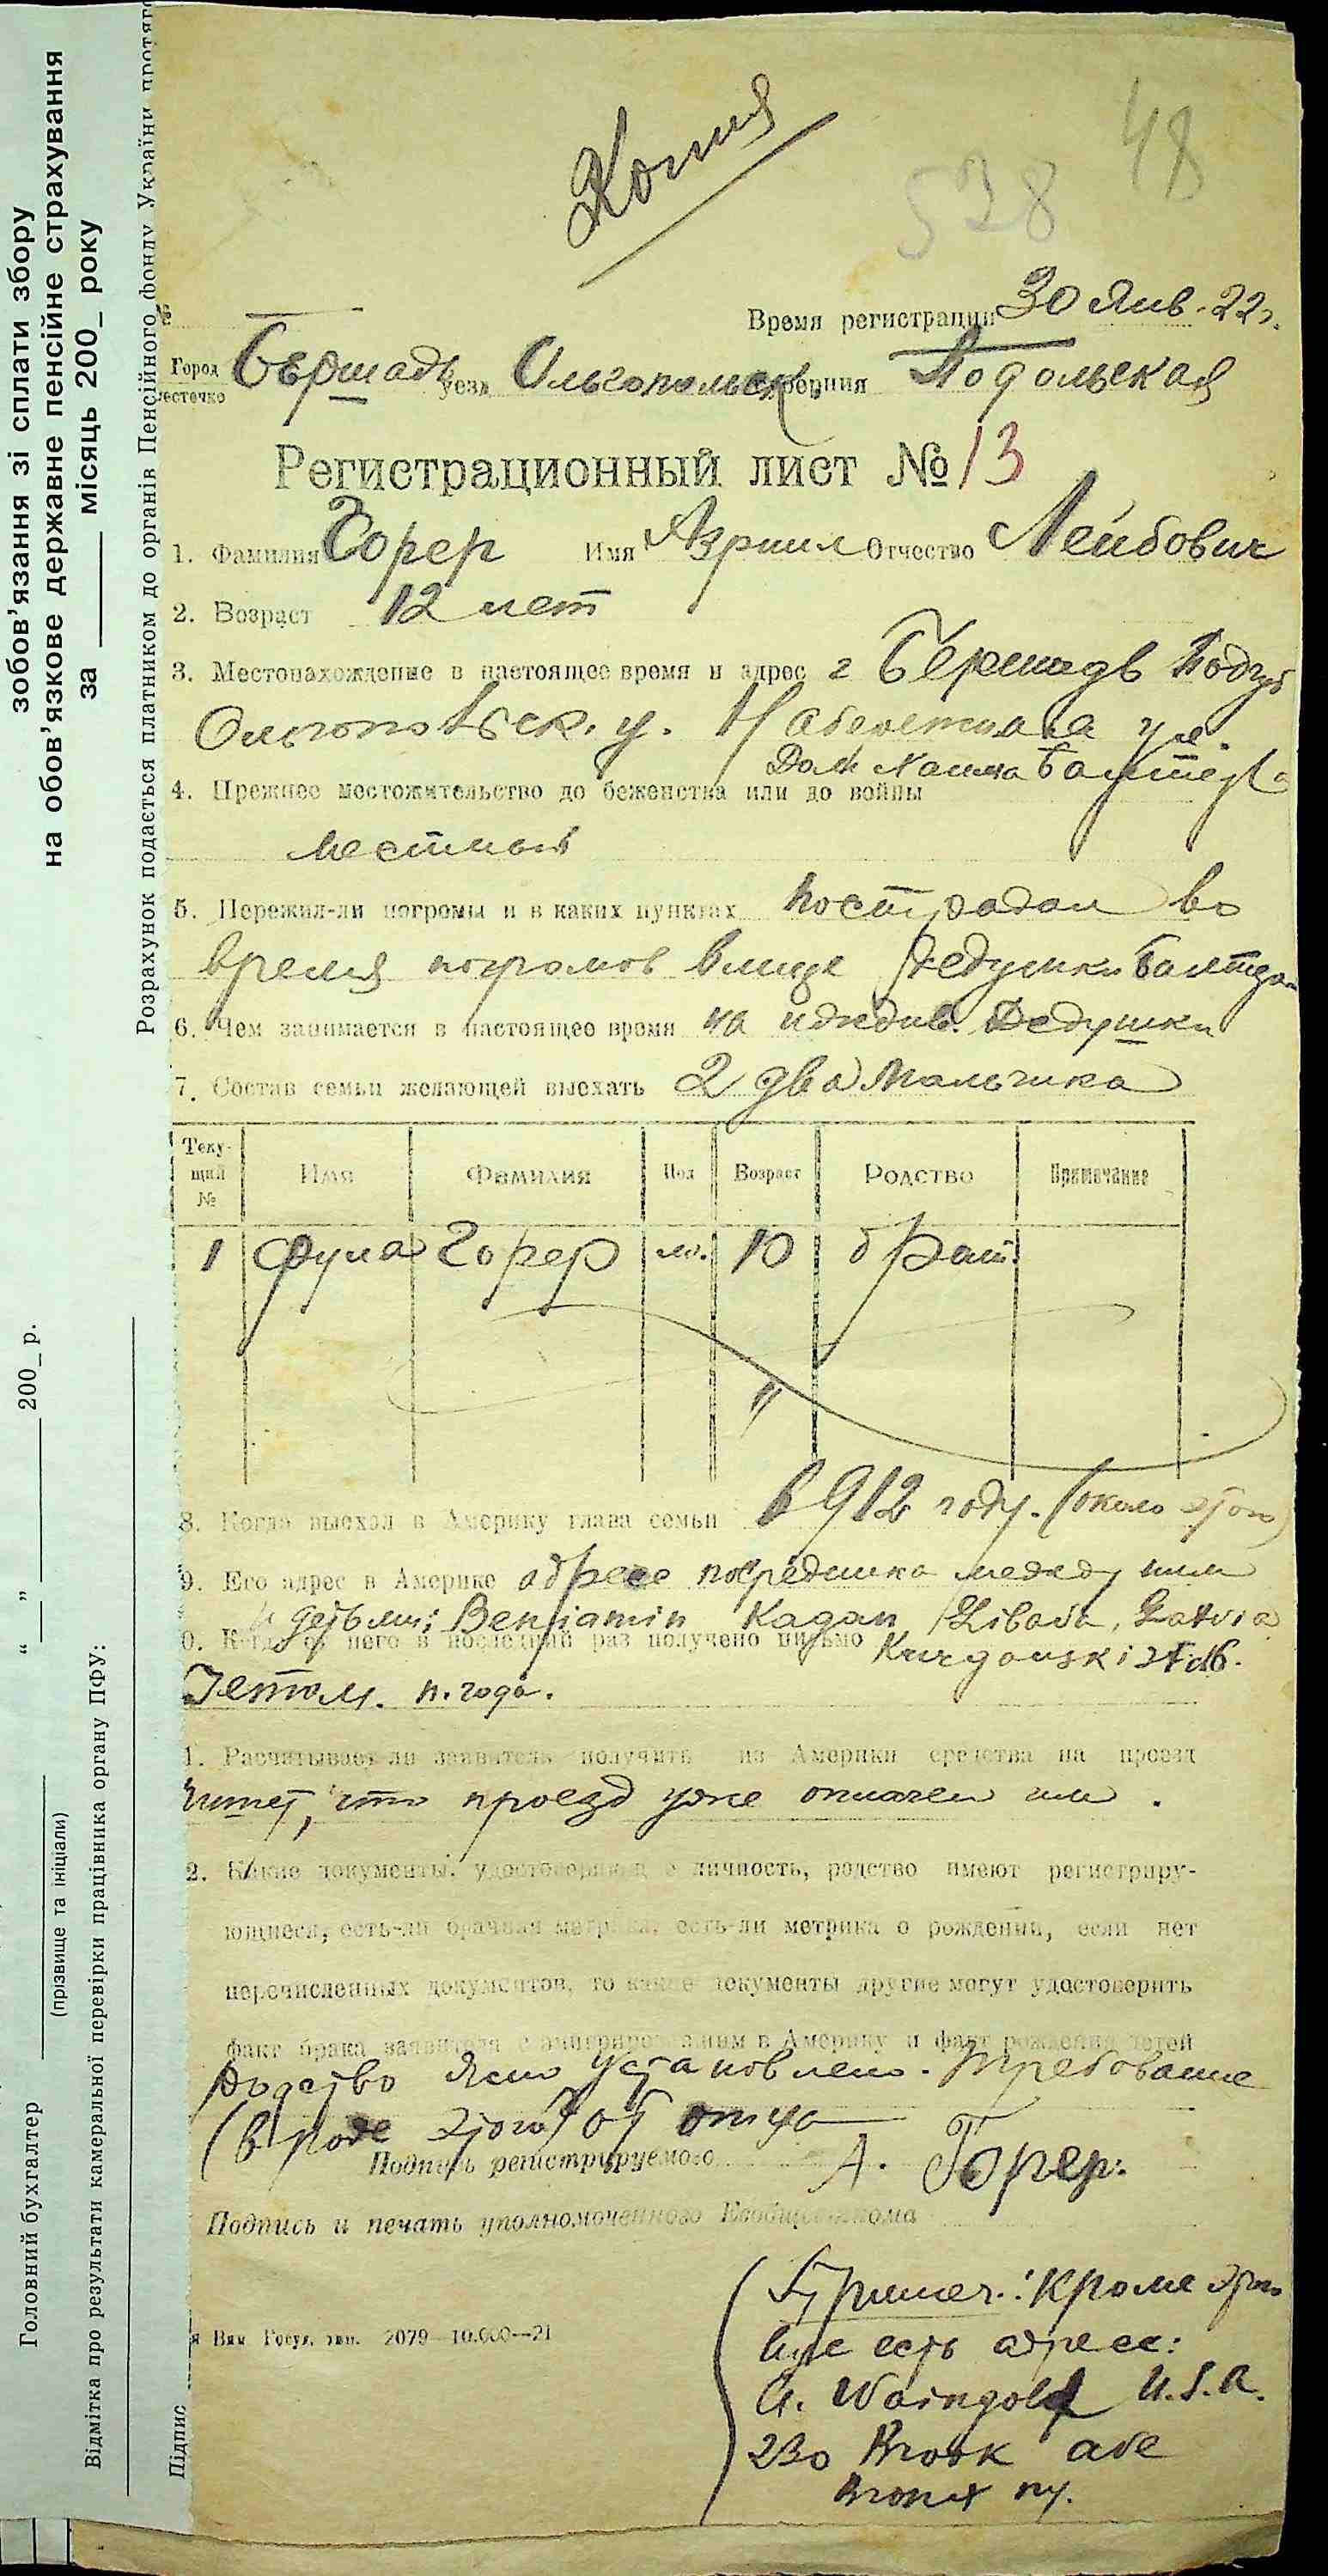 зобов'язання зі сплати збору
на обов'язкове державне пенсійне страхування
за ____ місяць 200_ року
Розрахунок подається платником до органів Пенсійного фонду України протяг
200_ р.
Головний бухгалтер
(прізвище та ініціали)
Відмітка про результати камеральної перевірки працівника органу ПФУ:
Підпис
Копия
48
528
№
Время регистрации 30 Янв. 22г.
Город Бершадь уезд Ольгопольск. губерния Подольская
местечко
Регистрационный лист № 13
1. Фамилия Горер Имя Азриил Отчество Лейбович
2. Возраст 12 лет
3. Местонахождение в настоящее время и адрес г Бершадь Под. губ
Ольгопольск. у. ул.
Дом
4. Прежнее местожительство до беженства или до войны
местный
5. Пережил-ли погромы и в каких пунктах пострадал во
время погромов в лице дедушки
6. Чем занимается в настоящее время на иждив. Дедушки
7. Состав семьи желающей выехать 2 два мальчика
Теку-щий № Имя Фамилия Пол Возраст Родство Примечание
1 Фуна Горер м. 10 брат
8. Когда выехал в Америку глава семьи в 912 году. (около этого)
9. Его адрес в Америке адрес посредника между ним
и детьми: Benjamin Kagan, Libava, Latvia
0. Когда от него в последний раз получено письмо Kurgauski
Летом. п. года.
1. Расчитывает ли заявитель получить из Америки средства на проезд
что проезд уже оплачен им.
2. Какие документы, удостоверяющ е личность, родство имеют регистриру-
ющиеся, есть-ли брачная метрика, есть-ли метрика о рождении, если нет
перечисленных документов, то какие документы другие могут удостоверить
факт брака заявителя с эмигрировавшим в Америку и факт рождения детей
Родство ясно установлено. Требование
(в роде этого) от отца
Подпись регистрируемого А. Горер.
Подпись и печать уполномоченного Евобщесткома
(Примеч.: Кроме этого
еще есть адрес:
A. Waingold U.S.A.
230 Brook ave
Bronx ny.
я Вин. Госуд. тип. 2079—10.000—21